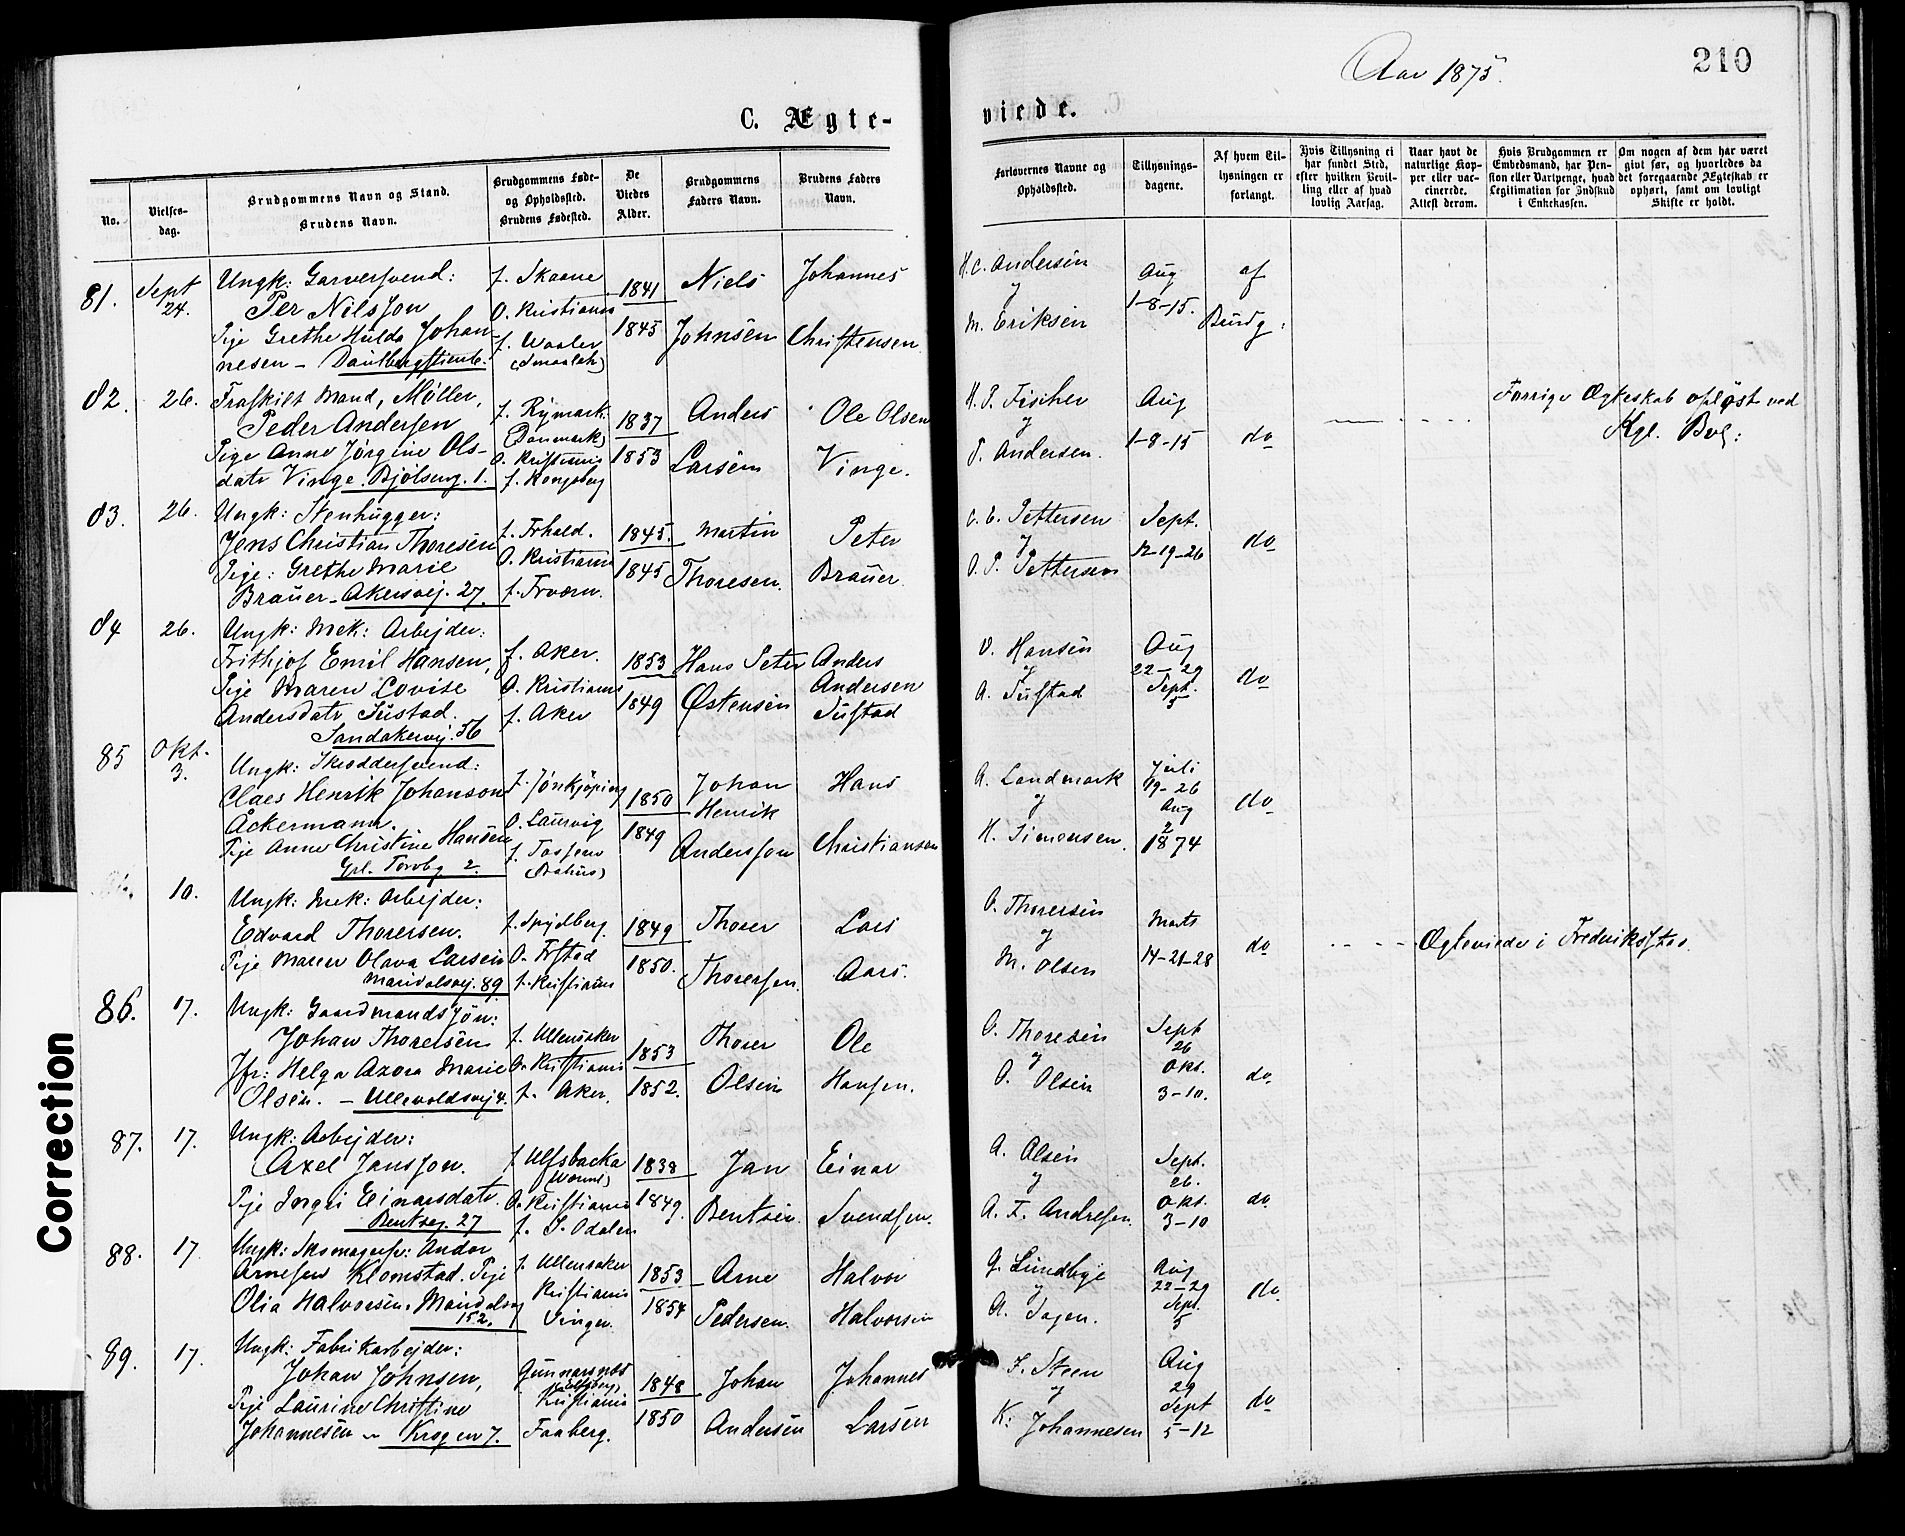 Aar 1875.
210
C. Ægte-
viede.
No.
Vielses-
dag.
Brudgommens Navn og Stand.
Brudens Navn.
Brudgommens Føde-
og Opholdssted.
Brudens Fødested.
De
Viedes
Alder.
Brudgommens
Faders Navn.
Brudens Faders
Navn.
Forlovernes Navne og
Opholdssted.
Tillysnings-
dagene.
Af hvem Til-
lysningen er
forlangt.
Hvis Tillysning ei
har fundet Sted,
efter hvilken Bevil-
ling eller af hvad
lovlig Aarsag.
Naar havt de
naturlige Kop-
per eller vac-
cinerede.
Attest derom.
Hvis Brudgommen er
Embedsmand, har Pen-
sion eller Vartpenge, hvad
Legitimation for Indskud
i Enkekassen.
Om nogen af dem har været
givt før, og hvorledes da
det foregaaende Ægteskab er
ophørt, samt om lovligt
Skifte er holdt.
81.
Sept
24.
Ungk: Garversvend:
Per Nilsson
Pige Grethe Hulda Johan-
nesen -
f. Skaane
O. Kristiania
f. Waaler
(Smaalehn)
1841
1845
Niels
Johnsen
Johannes
Christensen
H. C. Andersen
og
M. Eriksen
Aug
1-8-15.
af
Brudg:
82.
26.
Fraskilt Mand, Møller,
Peder Andersen
Pige Anne Jørgine Ols-
datr Vinge. Bjølseng. 1.
f. Rymark
(Danmark)
O. Kristiania
f. Kongsberg
1837
1853
Anders
Larsen
Ole Olsen
Vinge.
H. P. Fischer
og
P. Andersen.
Aug
1-8-15
do
Forrige Ægteskab opløst ved
Kgl. Bev:
83.
26.
Ungk: Stenhugger:
Jens Christian Thoresen
Pige: Grethe Marie
Brauer - Akersvej. 27.
f. Frhald.
O. Kristiania
f. Tværn.
1845.
1845
Martin
Thoresen.
Peter
Brauer.
C. E. Pettersen
og
O. P. Pettersen
Sept.
12-19-26
do
84
26.
Ungk: Mek: Arbejder:
Frithjof Emil Hansen,
Pige Maren Lovise
Andersdatr Sustad.
Sandakervej. 56
f. Aker.
O. Kristiania
f. Aker
1853
1849
Hans Peter
Østensen
Anders
Andersen
Sustad
O. Hansen
og
A. Sustad
Aug
22-29
Sept.
5
do
85
Okt.
3.
Ungk: Skräddersvend:
Claes Henrik Johanson
Åckermann.
Pige Anne Christine Hansen
Grl. Torvbg 2.
f. Jönkjöping
O. Laurvig
f. Tossene
(Bahus)
1850
1849
Johan
Henrik
Andersson
Hans
Christiansen
A. Landmark
og
H. Simensen.
Juli
19-26
Aug
2
1874
do
10.
Ungk: Mek: Arbejder:
Edvard Thoresen.
Pige Maren Olava Larsen
Maridalsvej. 89
f. Spydberg.
O. Frstad
f. Kristiania
1849
1850.
Thorer
Thorersen.
Lars
Aars.
O. Thorersen
og
M. Olsen
Marts
14-21-28
do
Ægteviede i Fredriksstad.
86.
17.
Ungk: Gaardmandssøn:
Johan Thoresen
Jfr: Helga Azora Marie
Olsen. - Ullevoldsvej 4.
f. Ullensaker
O. Kristiania
f. Aker.
1853
1852.
Thorer
Olsen
Ole
Hansen.
O. Thoresen
og
O. Olsen
Sept
26
Okt.
3-10.
do
87.
17.
Ungk: Arbejder:
Axel Jansson.
Pige Ingri Einarsdatr.
Bentseg. 27
f. Ulfsbacka
(Werml)
O. Kristiania
f. S. Odalen
1838
1849.
Jan
Bentsen.
Einar
Svendsen.
A. Olsen
og
A. F. Andresen.
Sept.
26.
Okt.
3-10
do
88.
17.
Ungk: Skomagersv: Andor
Arnesen Klomstad. Pige
Olia Halvorsen. Maridalsvej
152.
f. Ullensaker
Kristiania
Vinger.
1853
1854
Arne
Pedersen.
Halvor
Halvorsen
G. Lundbye
og
A. Sagen.
Aug
22-29
Sept.
5
do
89.
17.
Ungk: Fabrikarbejder:
Johan Johnsen,
Pige Laurine Christine
Johannesen - Krogen 7.
Gunnarsnæs
(Elfsborg)
Kristiania
Faaberg.
1848
1850
Johan
Andersen
Johannes
Larsen
J. Steen
og
K: Johannesen
Aug
29
Sept
5-12
do
Correction